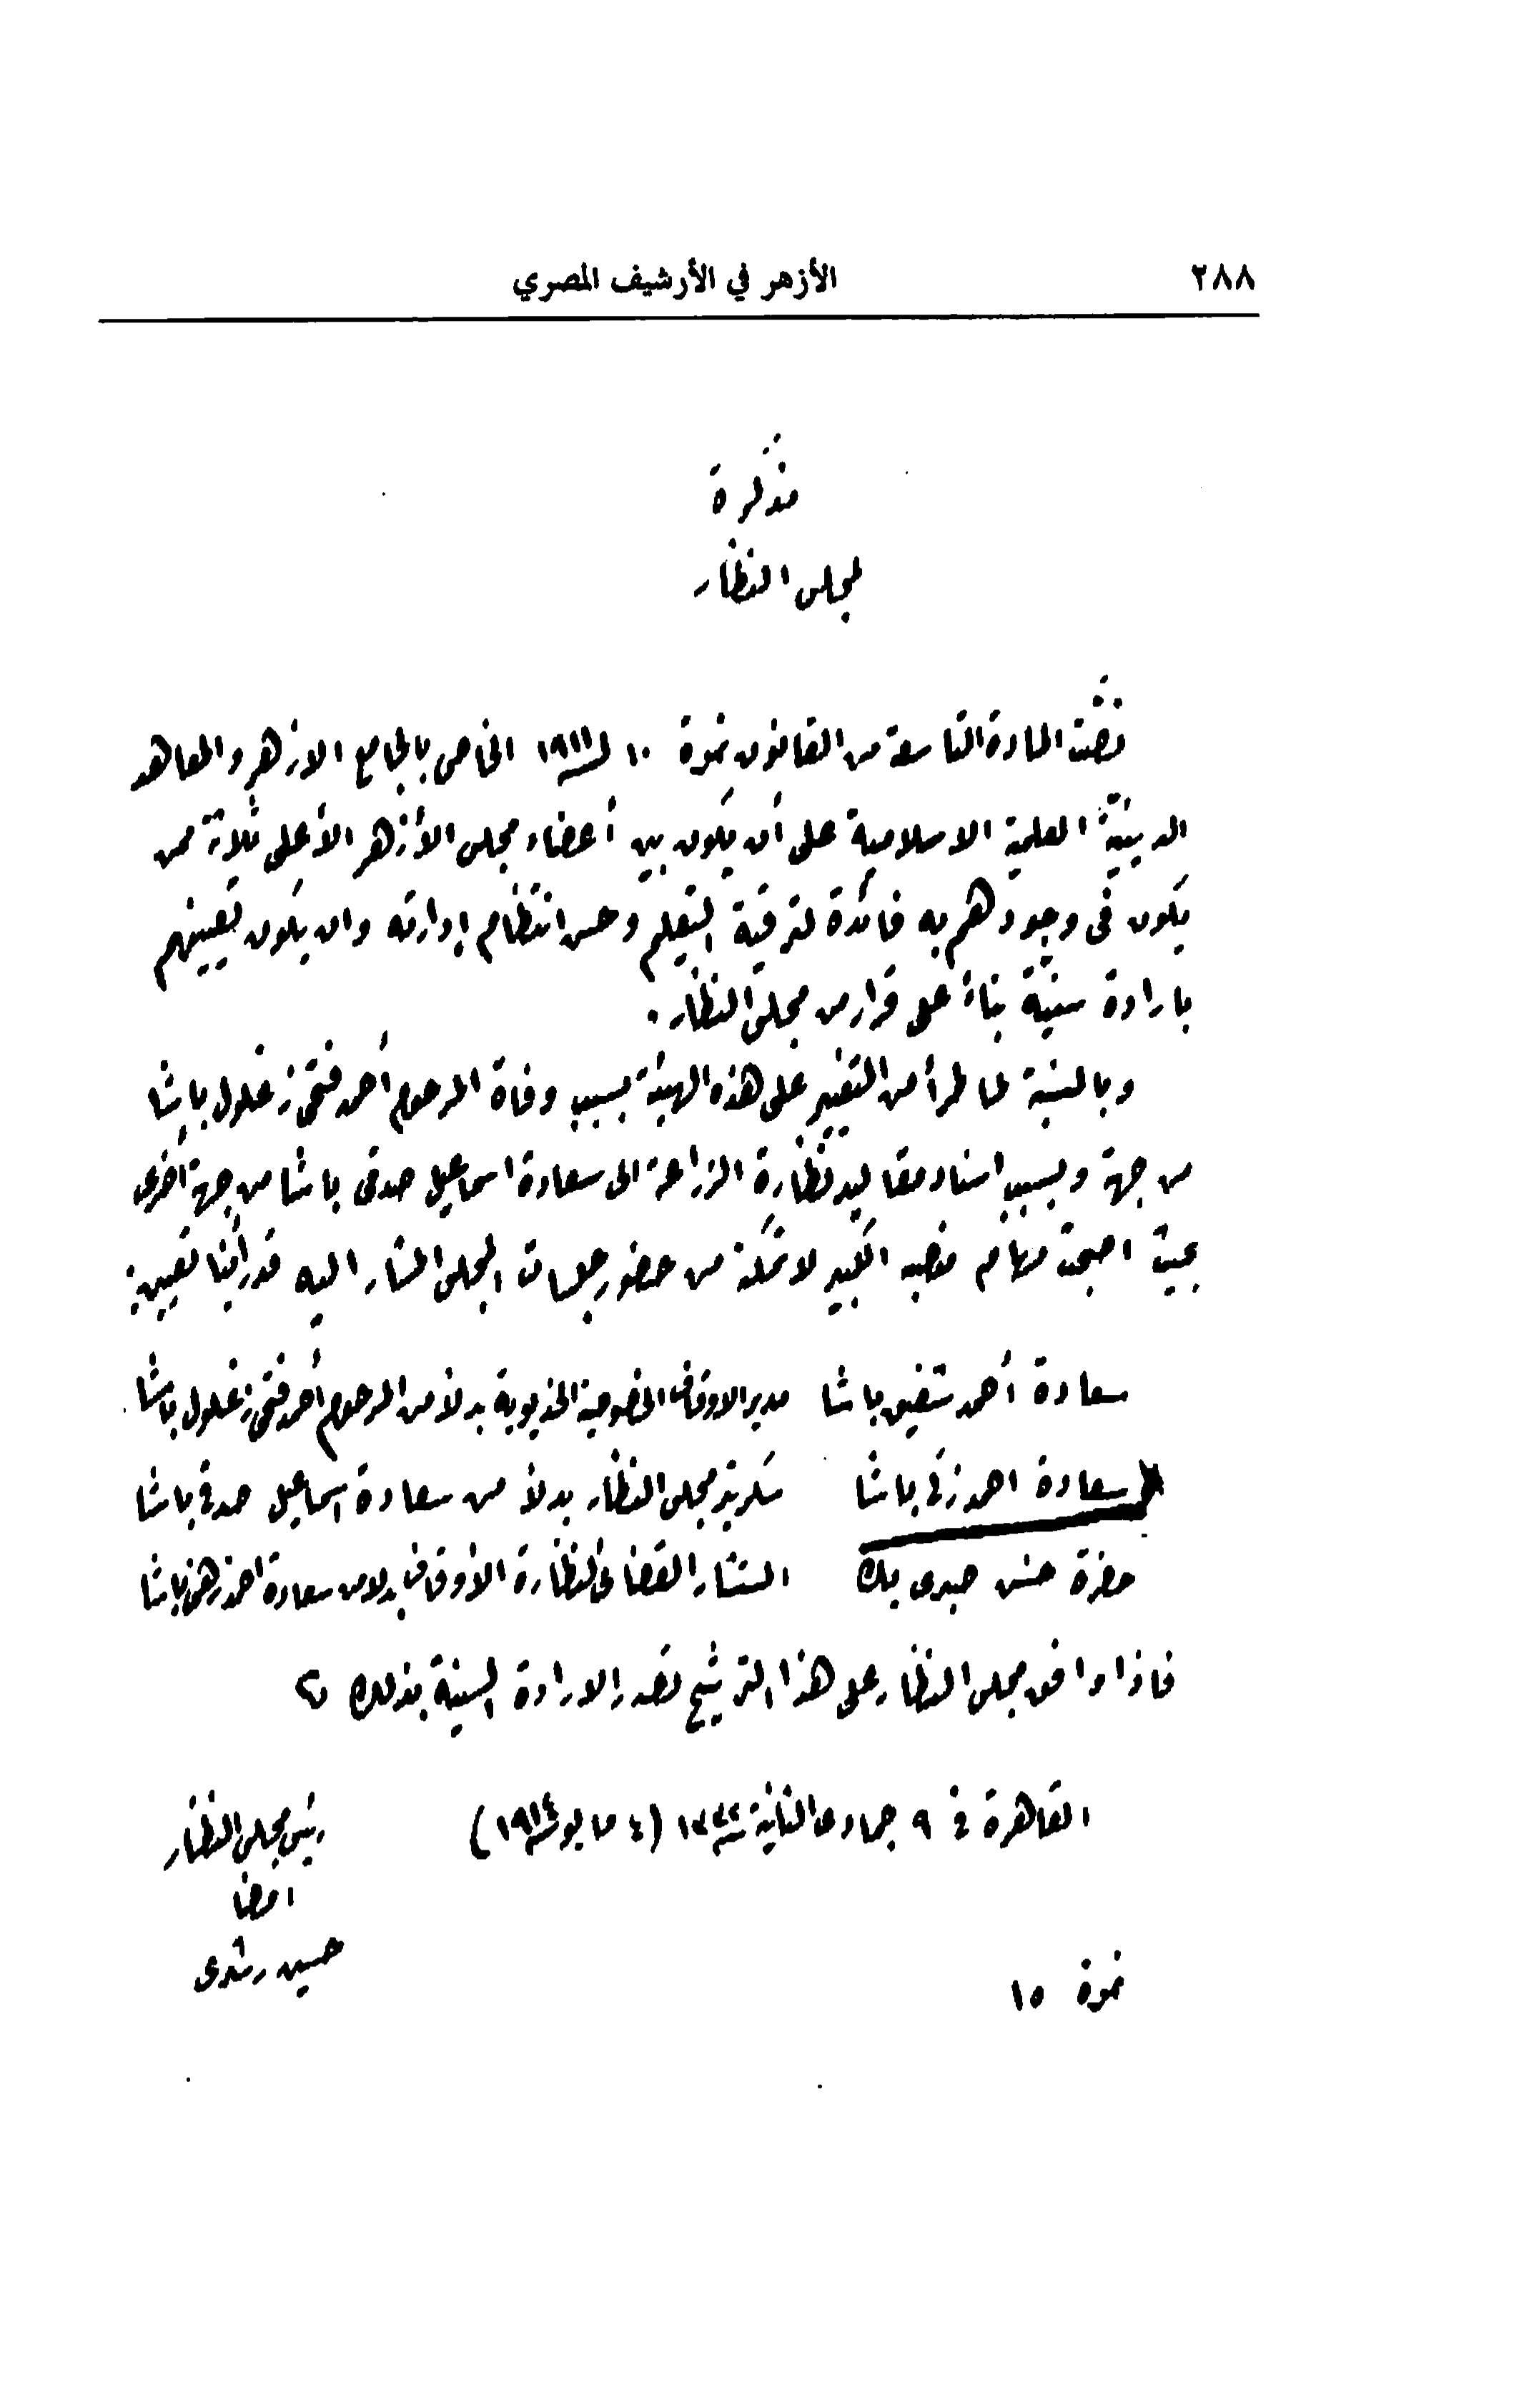 ٢٨٨
الأزهر في الأرشيف المصري
مذكرة
لمجلس النظار
نصّت المادة التاسعة من القانون نمرة ١٠ لسنة ١٩١١ الخاص بالجامع الازهر والمعاهد
الدينيّة العلمية الاسلامية على أن يكون بين أعضاء مجلس الأزهر الأعلى ثلاثة ممن
يكون فى وجودهم به فائدة لترقية التعليم وحسن انتظام إدارته وان يكون تعيينهم
بارادة سنيّة بناءً على قرار من مجلس النظار .
وبالنسبة لما طرأ من التغيير على هذه الهيئة بسبب وفاة المرحوم أحمد فتحى زغلول باشا
من جهة وبسبب اسناد مقاليد نظارة الزراعة الى سعادة اسماعيل صدقى باشا من جهة أخرى
بحيث اصبحت مهام منصبه الكبير لا تمكنه من حضور جلسات المجلس المشار اليه قد رأينا تعيين :
سعادة أحمد شفيق باشا مدير الاوقاف الخصوصية الخديوية بدلاً من المرحوم أحمد فتحى زغلول باشا
سعادة احمد زكى باشا سكرتير مجلس النظار بدلاً من سعادة اسماعيل صدقى باشا
حضرة حسن صبرى بك المستشار القضائى لنظارة الأوقاف بدلا من سعادة احمد زهنى باشا
فاذا وافق مجلس النظار على هذا الترشيح تصدر الارادة السنية بذلك
القاهرة فى ٩ جمادى الثانية سنة ١٣٣٢ (٤ مايو سنة ١٩١٤)
رئيس مجلس النظار
امضا
حسين رشدى
نمرة ١٥